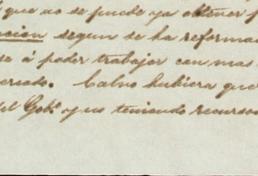 que no se puede ya obtener
cion segun se ha reforma
se á poder trabajar con mas
ercado. Calvo hubiera que
del Gobo y us teniendo recursos